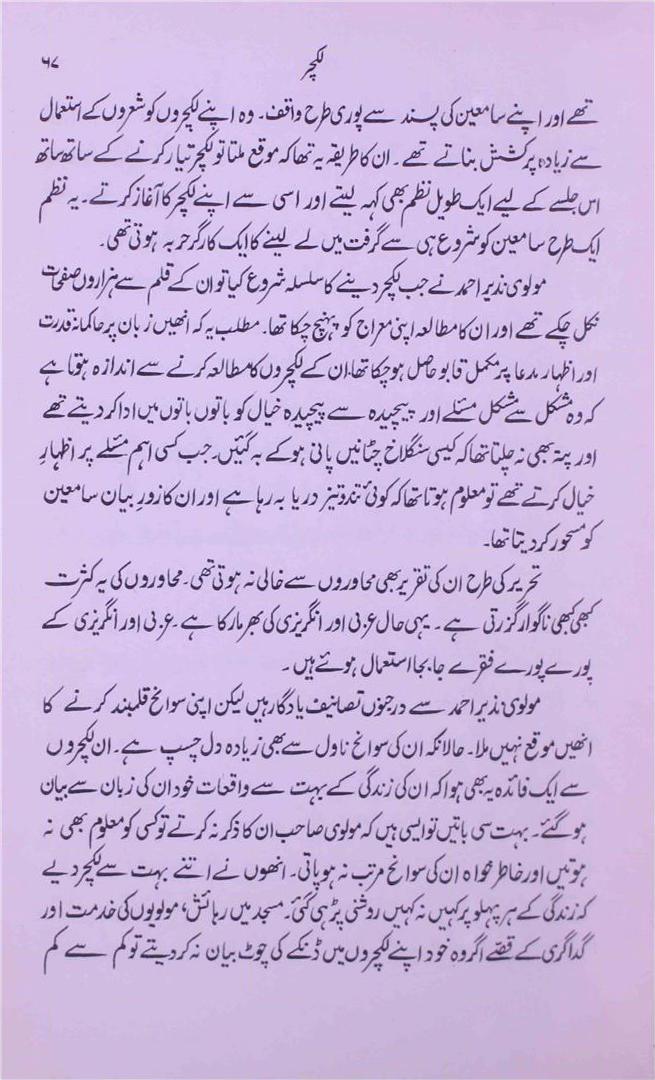 لکچر ۶۷
تھے اور اپنے سامعین کی پسند سے پوری طرح واقف۔ وہ اپنے لکچروں کو شعروں کے استعمال
سے زیادہ پرکشش بناتے تھے۔ ان کا طریقہ یہ تھا کہ موقع ملتا تو لکچر تیار کرنے کے ساتھ ساتھ
اس جلسے کے لیے ایک طویل نظم بھی کہہ لیتے اور اسی سے اپنے لکچر کا آغاز کرتے۔ یہ نظم
ایک طرح سامعین کو شروع ہی سے گرفت میں لے لینے کا ایک کارگر حربہ ہوتی تھی۔
مولوی نذیر احمد نے جب لکچر دینے کا سلسلہ شروع کیا تو ان کے قلم سے ہزاروں صفحات
نکل چکے تھے اور ان کا مطالعہ اپنی معراج کو پہنچ چکا تھا۔ مطلب یہ کہ انھیں زبان پر حاکمانہ قدرت
اور اظہار مدعا پر مکمل قابو حاصل ہو چکا تھا۔ ان کے لکچروں کا مطالعہ کرنے سے اندازہ ہوتا ہے
کہ وہ مشکل سے مشکل مسئلے اور پیچیدہ سے پیچیدہ خیال کو باتوں باتوں میں ادا کر دیتے تھے
اور پتہ بھی نہ چلتا تھا کہ کیسی سنگلاخ چٹانیں پانی ہو کے بہ گئیں۔ جب کسی اہم مسئلے پر اظہارِ
خیال کرتے تھے تو معلوم ہوتا تھا کہ کوئی تند و تیز دریا بہ رہا ہے اور ان کا زورِ بیان سامعین
کو مسحور کر دیتا تھا۔
تحریر کی طرح ان کی تقریر بھی محاوروں سے خالی نہ ہوتی تھی۔ محاوروں کی یہ کثرت
کبھی کبھی ناگوار گزرتی ہے۔ یہی حال عربی اور انگریزی کی بھرمار کا ہے۔ عربی اور انگریزی کے
پورے پورے فقرے جا بجا استعمال ہوئے ہیں۔
مولوی نذیر احمد سے درجنوں تصانیف یادگار ہیں لیکن اپنی سوانح قلمبند کرنے کا
انھیں موقع نہیں ملا۔ حالانکہ ان کی سوانح ناول سے بھی زیادہ دل چسپ ہے۔ ان لکچروں
سے ایک فائدہ یہ بھی ہوا کہ ان کی زندگی کے بہت سے واقعات خود ان کی زبان سے بیان
ہو گئے۔ بہت سی باتیں تو ایسی ہیں کہ مولوی صاحب ان کا ذکر نہ کرتے تو کسی کو معلوم بھی نہ
ہوتیں اور خاطر خواہ ان کی سوانح مرتب نہ ہو پاتی۔ انھوں نے اتنے بہت سے لکچر دیے
کہ زندگی کے ہر پہلو پر کہیں نہ کہیں روشنی پڑ ہی گئی۔ مسجد میں رہائش، مولویوں کی خدمت اور
گداگری کے قصّے اگر وہ خود اپنے لکچروں میں ڈنکے کی چوٹ بیان نہ کر دیتے تو کم سے کم